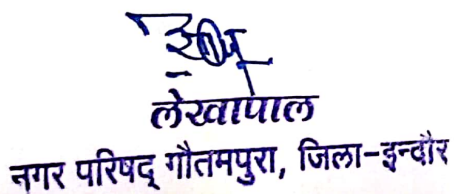 लेखापाल
नगर परिषद् गौतमपुरा, जिला-इन्दौर